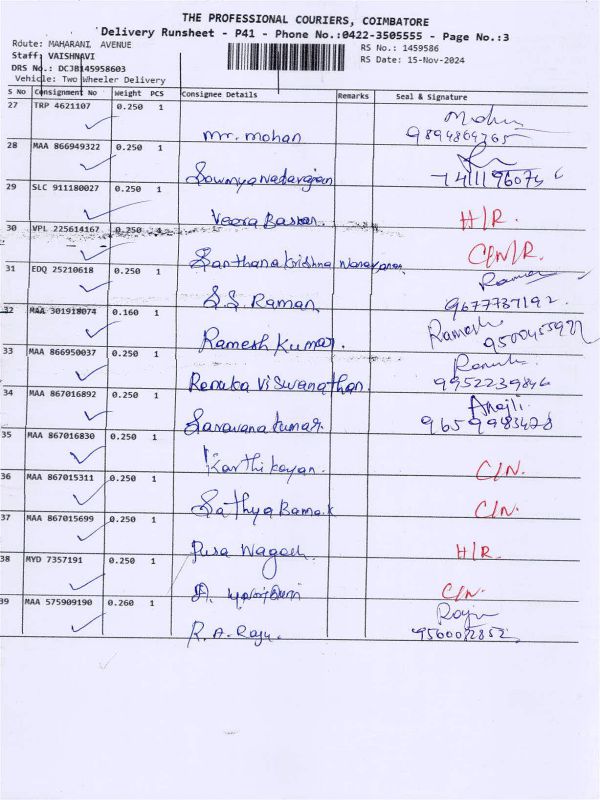 THE PROFESSIONAL COURIERS, COIMBATORE
Delivery Runsheet - P41 - Phone No.:0422-3505555 - Page No.:3
Route: MAHARANI AVENUE RS No.: 1459586
Staff: VAISHNAVI RS Date: 15-Nov-2024
DRS No.: DCJB145958603
Vehicle: Two Wheeler Delivery
S No Consignment No Weight PCS Consignee Details Remarks Seal & Signature
27 TRP 4621107 0.250 1 Mr. Mohan Mohan
9894869765
28 MAA 866949322 0.250 1 Sowmya Nadarajan
29 SLC 911180027 0.250 1 Veera Baskar. H/R.
30 VPL 225614167 0.250 Santhana Krishna Narayanan C/N/R.
31 EDQ 25210618 0.250 1 S.S. Raman Raman
9677787192.
32 MAA 301918074 0.160 1 Ramesh Kumar. Ramesh
33 MAA 866950037 0.250 1 Renuka Viswanathan.
9952239846
34 MAA 867016892 0.250 1 Saravana Kumar Anajli.
9659983428
35 MAA 867016830 0.250 1 Karthikayan. C/N.
36 MAA 867015311 0.250 1 Sathya Bama.k C/N.
37 MAA 867015699 0.250 1 H/R.
38 MYD 7357191 0.250 1 C/N.
39 MAA 575909190 0.260 1 R.A. Raju. Raju
9560082852